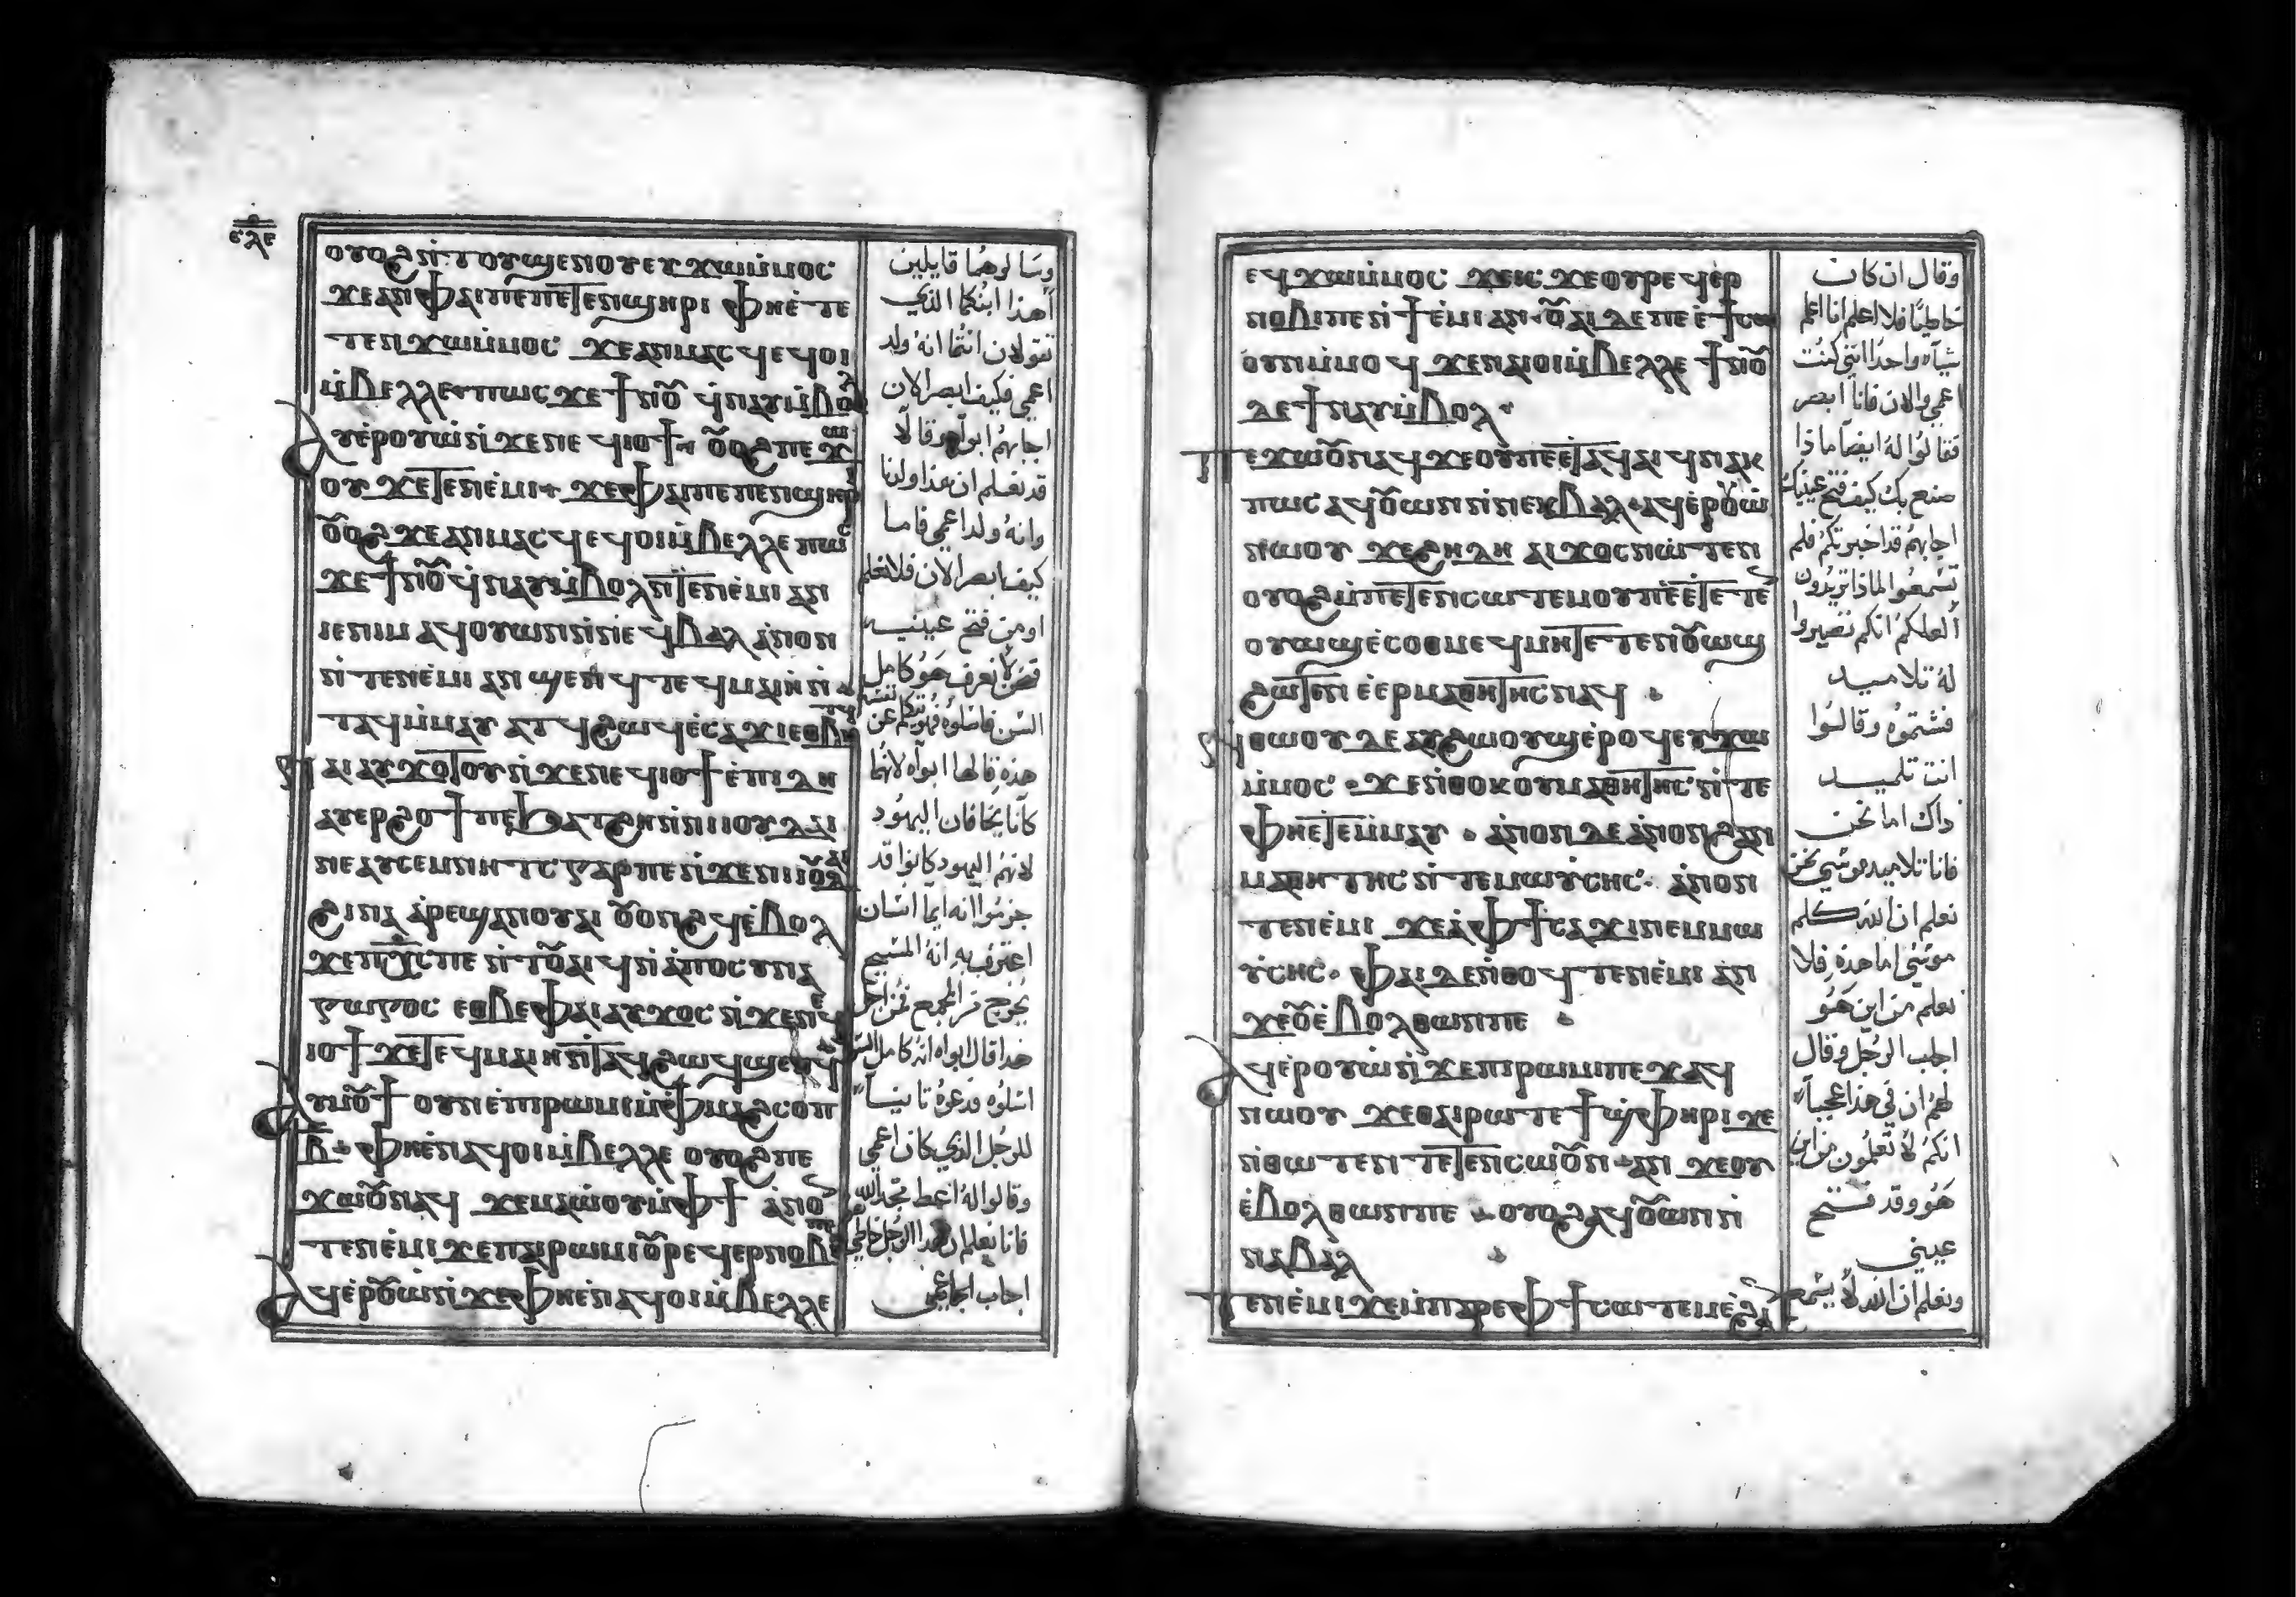 ⲟⲩⲟϩ ⲛⲧⲟⲩϣⲉⲛⲟⲩ ⲉⲩϫⲱⲙⲙⲟⲥ
ϫⲉ ⲁⲛ ⲫⲁⲓ ⲡⲉ ⲡⲉⲧⲉⲛϣⲏⲣⲓ ⲫⲏⲉⲧⲉ
ⲧⲉⲛϫⲱⲙⲙⲟⲥ ϫⲉ ⲁⲛⲙⲁⲥϥ ⲉϥⲟⲓ
ⲙⲃⲉⲗⲗⲉ ⲡⲱⲥ ϫⲉ ϯⲛⲟⲩ ϥⲛⲁⲩ ⲙⲃⲟⲗ
ⲁⲩⲉⲣⲟⲩⲱ ⲛϫⲉ ⲛⲉϥⲓⲟϯ ⲟⲩⲟϩ ⲡⲉϫⲱ
ⲟⲩ ϫⲉ ⲧⲉⲛⲉⲙⲓ ϫⲉ ⲫⲁⲓ ⲡⲉ ⲡⲉⲛϣⲏⲣⲓ
ⲟⲩⲟϩ ϫⲉ ⲁⲛⲙⲁⲥϥ ⲉϥⲟⲓ ⲙⲃⲉⲗⲗⲉ ⲡⲱⲥ
ϫⲉ ϯⲛⲟⲩ ϥⲛⲁⲩ ⲙⲃⲟⲗ ⲛⲧⲉⲛⲉⲙⲓ ⲁⲛ
ⲓⲉ ⲛⲓⲙ ⲁϥⲟⲩⲱⲛ ⲛⲛⲉϥⲃⲁⲗ ⲁⲛⲟⲛ
ⲛⲧⲉⲛⲉⲙⲓ ⲁⲛ ϣⲉⲛϥ ⲧⲉϥⲙⲁⲓⲏ ⲛ
ⲧⲁϥ ⲙⲙⲁⲩ ϥϩⲱϥ ⲉⲥⲁϫⲓ ⲉⲑⲃⲏⲧϥ
ⲛⲁⲓ ⲁⲩϫⲟⲧⲟⲩ ⲛϫⲉ ⲛⲉϥⲓⲟϯ ⲉⲡⲓⲇⲏ
ⲁⲩⲉⲣϩⲟϯ ⲡⲉ ϧⲁⲧϩⲏ ⲛⲛⲓⲓⲟⲩⲇⲁⲓ
ⲛⲉ ⲁⲩⲥⲉⲙⲛⲏⲧⲥ ⲅⲁⲣ ⲡⲉ ⲛϫⲉ ⲛⲓⲓⲟⲩⲇⲁⲓ
ϩⲓⲛⲁ ⲁⲣⲉϣⲁⲛ ⲟⲩⲁⲓ ⲟⲩⲟⲛϩϥ ⲉⲃⲟⲗ
ϫⲉ ⲡⲭⲥ ⲡⲉ ⲛⲧⲟⲩⲁⲓϥ ⲛⲁⲡⲟⲥⲩⲛⲁ
ⲅⲱⲅⲟⲥ ⲉⲑⲃⲉ ⲫⲁⲓ ⲁⲩϫⲟⲥ ⲛϫⲉ ⲛⲉϥ
ⲓⲟϯ ϫⲉ ⲧⲉϥⲙⲁⲓⲏ ⲛⲧⲁϥ ϩⲱϥ ϣⲉⲛϥ
ⲁⲩⲙⲟⲩϯ ⲟⲩⲛ ⲉⲡⲓⲣⲱⲙⲓ ⲙⲫⲙⲁϩⲥⲟⲡ
ⲃ ⲫⲏⲉⲛⲁϥⲟⲓ ⲙⲃⲉⲗⲗⲉ ⲟⲩⲟϩ ⲡⲉ
ϫⲱⲟⲩ ⲛⲁϥ ϫⲉ ⲙⲁⲱⲟⲩ ⲙⲫϯ ⲁⲛⲟⲛ
ⲧⲉⲛⲉⲙⲓ ϫⲉ ⲡⲁⲓⲣⲱⲙⲓ ⲟⲩⲣⲉϥⲉⲣⲛⲟⲃⲓ ⲡⲉ
ⲁϥⲉⲣⲟⲩⲱ ⲛϫⲉ ⲫⲏⲉⲛⲁϥⲟⲓ ⲙⲃⲉⲗⲗⲉ
وسالوهما قايلين
أهذا ابنكما الذي
تقولان انتما انه ولد
اعمي فكيف ابصر الان
اجابهم ابواه وقالا
قد نعلم ان هذا ولدنا
وانه ولد اعمي فاما
كيف ابصر الان فلا نعلم
او من فتح عينيه
السن فاسلوه فهو يتكلم عن
هذه قالها ابواه لانهما
كانا يخافان اليهود
لانهم اليهود كانوا قد
جزموا انه ايما انسان
اعترف به انه المسيح
يخرج من المجمع فمن اجل
هذا قال ابواه انه كامل السن
اسلوه فدعوه ثانيا
للرجل الذي كان اعمي
وقالوا له اعط مجد الله
فانا نعلم ان هذا الرجل خاطي
اجاب الاعمي
ⲉϥϫⲱⲙⲙⲟⲥ ϫⲉ ⲓⲥϫⲉ ⲟⲩⲣⲉϥⲉⲣ
ⲛⲟⲃⲓ ⲡⲉ ⲛϯⲉⲙⲓ ⲁⲛ ⲟⲩⲁⲓ ⲇⲉ ⲡⲉ ⲉϯⲥⲱ
ⲟⲩⲛ ⲙⲙⲟϥ ϫⲉ ⲛⲁⲓⲟⲓ ⲙⲃⲉⲗⲗⲉ ϯⲛⲟⲩ
ⲇⲉ ϯⲛⲁⲩ ⲙⲃⲟⲗ
ⲡⲉϫⲱⲟⲩ ⲛⲁϥ ϫⲉ ⲟⲩ ⲡⲉ ⲉⲧⲁϥⲁⲓϥ ⲛⲁⲕ
ⲡⲱⲥ ⲁϥⲟⲩⲱⲛ ⲛⲛⲉⲕⲃⲁⲗ ⲁϥⲉⲣⲟⲩⲱ
ⲛⲱⲟⲩ ϫⲉ ϩⲏⲇⲏ ⲁⲓϫⲟⲥ ⲛⲱⲧⲉⲛ
ⲟⲩⲟϩ ⲙⲡⲉⲧⲉⲛⲥⲱⲧⲉⲙ ⲟⲩ ⲡⲉ ⲉⲧⲉⲧⲉ
ⲟⲩⲱϣ ⲉⲥⲟⲑⲙⲉϥ ⲙⲏ ⲧⲉⲧⲉⲛⲟⲩⲱϣ
ϩⲱⲧⲉⲛ ⲉⲉⲣⲙⲁⲑⲏⲧⲏⲥ ⲛⲁϥ
ⲛⲑⲱⲟⲩ ⲇⲉ ⲁⲩϩⲱⲟⲩϣ ⲉⲣⲟϥ ⲉⲩϫⲱ
ⲙⲙⲟⲥ ϫⲉ ⲛⲑⲟⲕ ⲟⲩⲙⲁⲑⲏⲧⲏⲥ ⲛⲧⲉ
ⲫⲏⲉⲧⲉⲙⲙⲁⲩ ⲁⲛⲟⲛ ⲇⲉ ⲁⲛⲟⲛ ϩⲁⲛ
ⲙⲁⲑⲏⲧⲏⲥ ⲛⲧⲉ ⲙⲱⲩⲥⲏⲥ ⲁⲛⲟⲛ
ⲧⲉⲛⲉⲙⲓ ϫⲉ ⲁ ⲫϯ ⲥⲁϫⲓ ⲛⲉⲙ ⲙⲱ
ⲩⲥⲏⲥ ⲫⲁⲓ ⲇⲉ ⲛⲑⲟϥ ⲧⲉⲛⲉⲙⲓ ⲁⲛ
ϫⲉ ⲟⲩⲉⲃⲟⲗ ⲑⲱⲛ ⲡⲉ
ⲁϥⲉⲣⲟⲩⲱ ⲛϫⲉ ⲡⲓⲣⲱⲙⲓ ⲡⲉϫⲁϥ
ⲛⲱⲟⲩ ϫⲉ ⲑⲁⲓ ⲣⲱ ⲧⲉ ϯϣⲫⲏⲣⲓ ϫⲉ
ⲛⲑⲱⲧⲉⲛ ⲧⲉⲧⲉⲛⲥⲱⲟⲩⲛ ⲁⲛ ϫⲉ ⲟⲩ
ⲉⲃⲟⲗ ⲑⲱⲛ ⲡⲉ ⲟⲩⲟϩ ⲁϥⲟⲩⲱⲛ ⲛ
ⲛⲁⲃⲁⲗ
ⲧⲉⲛⲉⲙⲓ ϫⲉ ⲙⲡⲁⲣⲉ ⲫϯ ⲥⲱⲧⲉⲙ ⲉϩⲁⲛ
وقال ان كان
خاطيا فلا اعلم انا اعلم
شياء واحدا انني كنت
اعمي والان فانا ابصر
فقالوا له ايضا ماذا
صنع بك كيف فتح عينيك
اجابهم قد اخبرتكم فلم
تسمعوا لماذا تريدون
ألعلكم انكم تصيروا
له تلاميد
فشتموه وقالوا
انت تلميد
ذاك اما نحن
فانا تلاميد موسي نحن
نعلم ان الله كلم
موسي اما هذه فلا
نعلم من اين هو
اجاب الرجل وقال
لهم ان في هذا عجبا
انكم لا تعلمون من اين
هو وقد فتح
عيني
ونعلم ان الله لا يسمع